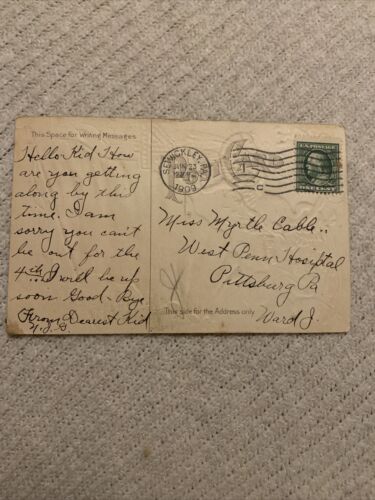 This Space for Writing Messages
Hello Kid How
are you getting
along by this
time. I am
sorry you can't
be out for the
4th I will be up
soon Good-Bye.
From Dearest Kid
SEWICKLEY, PA.
JUN 23
1909
U.S. POSTAGE
ONE CENT
Miss Myrtle Cable..
West Penn Hospital
Pittsburg Pa
This side for the Address only
Ward J.